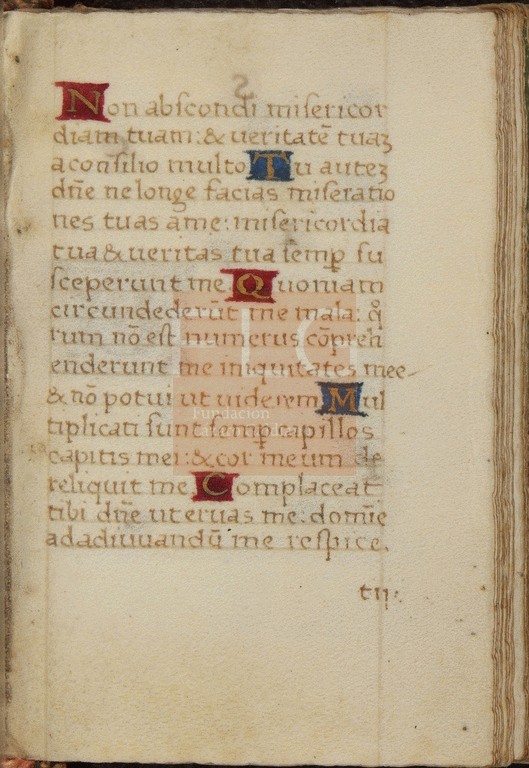 S
Non abscondi misericor
diam tuam: & ueritatē tuaꝫ
a consilio multo Tu auteꝫ
dn̄e ne longe facias miseratio
nes tuas a me: misericordia
tua & ueritas tua semꝑ su
sceperunt me Quoniam
circundederūt me mala: qͦ
rum nō est numerus cōpreh
enderunt me iniquitates mee
& nō potui ut uiderem Mul
tiplicati sunt semꝑ capillos
capitis mei: & cor meum de
reliquit me Complaceat
tibi dn̄e ut eruas me: domīe
ad adiuuandū me respice.
Fundación